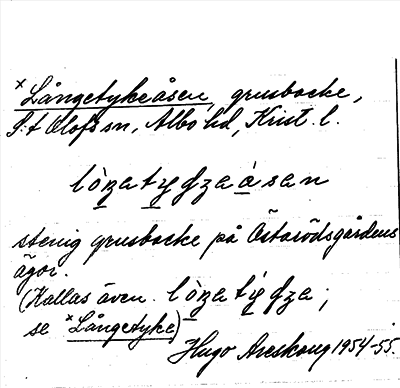 ×Långetykeåsen, grusbacke,
S:t Olofs sn, Albo hd, Krist. l.
lòŋatydʒaåsan
stenig grusbacke på Östarödsgårdens
ägor.
(Kallas även lòŋatýdʒa;
se ×Långetyke)
Hugo Areskoug 1954-55.